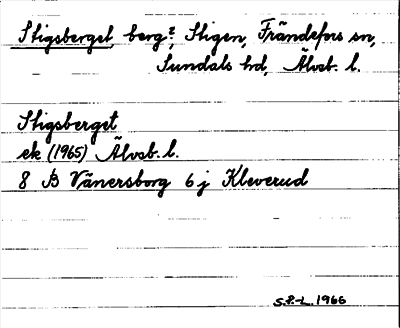 Stigsberget, berg?, Stigen, Frändefors sn,
Sundals hd, Älvsb. l.
Stigsberget
ek (1965) Älvsb. l.
8 B Vänersborg 6 j Kleverud
S.P-L. 1966